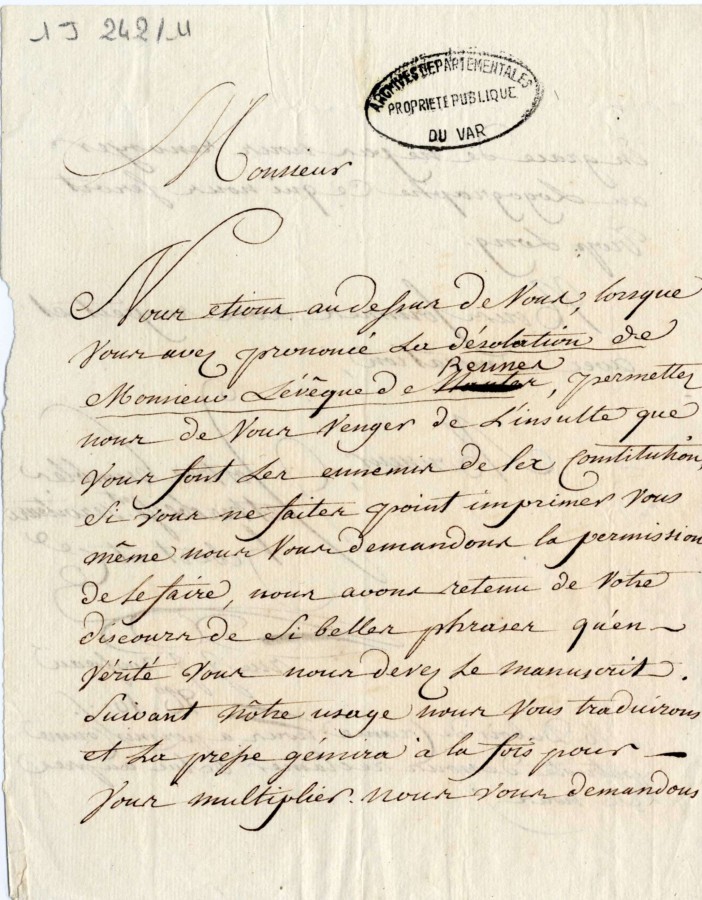 1 J 242/11
ARCHIVES DEPARTEMENTALES
PROPRIETE PUBLIQUE
DU VAR
Monsieur
Nous etions au dessus de Vous, lorsque
vous avez prononcé La désolation de
Rennes
Monsieur L'évêque de Nantes, permettez
nous de Vous Venger de L'insulte que
Vous font Les ennemis de la Constitution,
Si vous ne faites point imprimer vous
même nous Vous demandons la permission
de le faire, nous avons retenu de Votre
discours de Si belles phrases qu'en —
Vérité Vous nous devez Le manuscrit.
Suivant nôtre usage nous Vous traduirons
et La presse gémira à la fois pour —
Vous multiplier. nous vous demandons